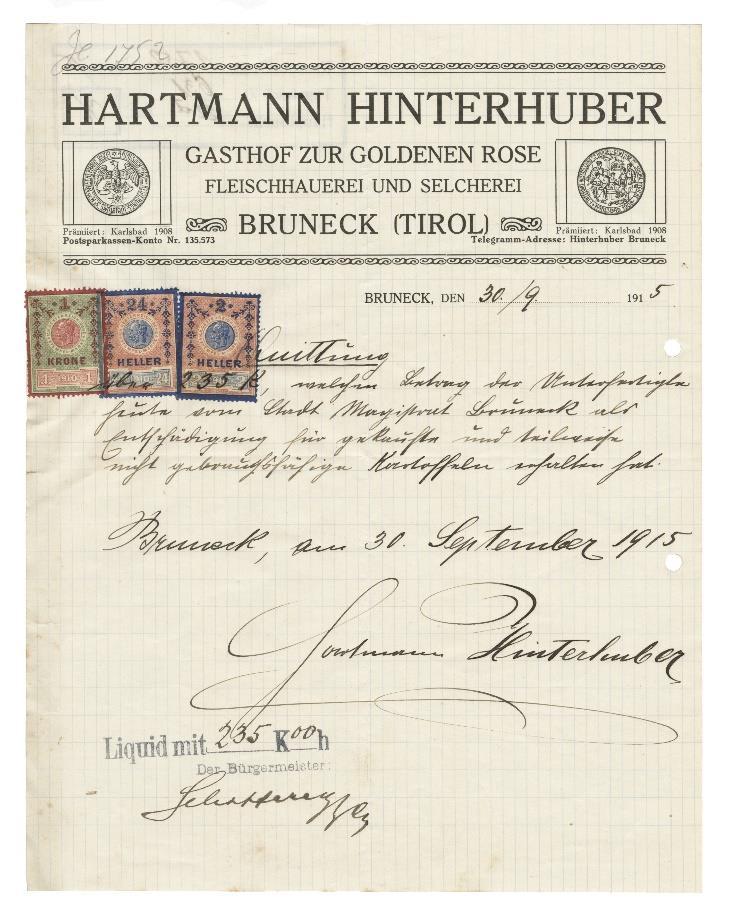 Je 1752
HARTMANN HINTERHUBER
GASTHOF ZUR GOLDENEN ROSE
FLEISCHHAUEREI UND SELCHEREI
BRUNECK (TIROL)
Prämiiert: Karlsbad 1908
Postsparkassen-Konto Nr. 135.573
Prämiiert: Karlsbad 1908
Telegramm-Adresse: Hinterhuber Bruneck
BRUNECK, DEN 30./9. 1915
1 KRONE 1 1910 1
24 HELLER 24
2 HELLER
Quittung
über 235 K, welchen Betrag der Unterfertigte
heute vom Stadt Magistrat Bruneck als
Entschädigung für gekaufte und teilweise
nicht gebrauchsfähige Kartoffeln erhalten hat.
Bruneck, am 30. September 1915
Hartmann Hinterhuber
Liquid mit 235 K 00 h
Der Bürgermeister: